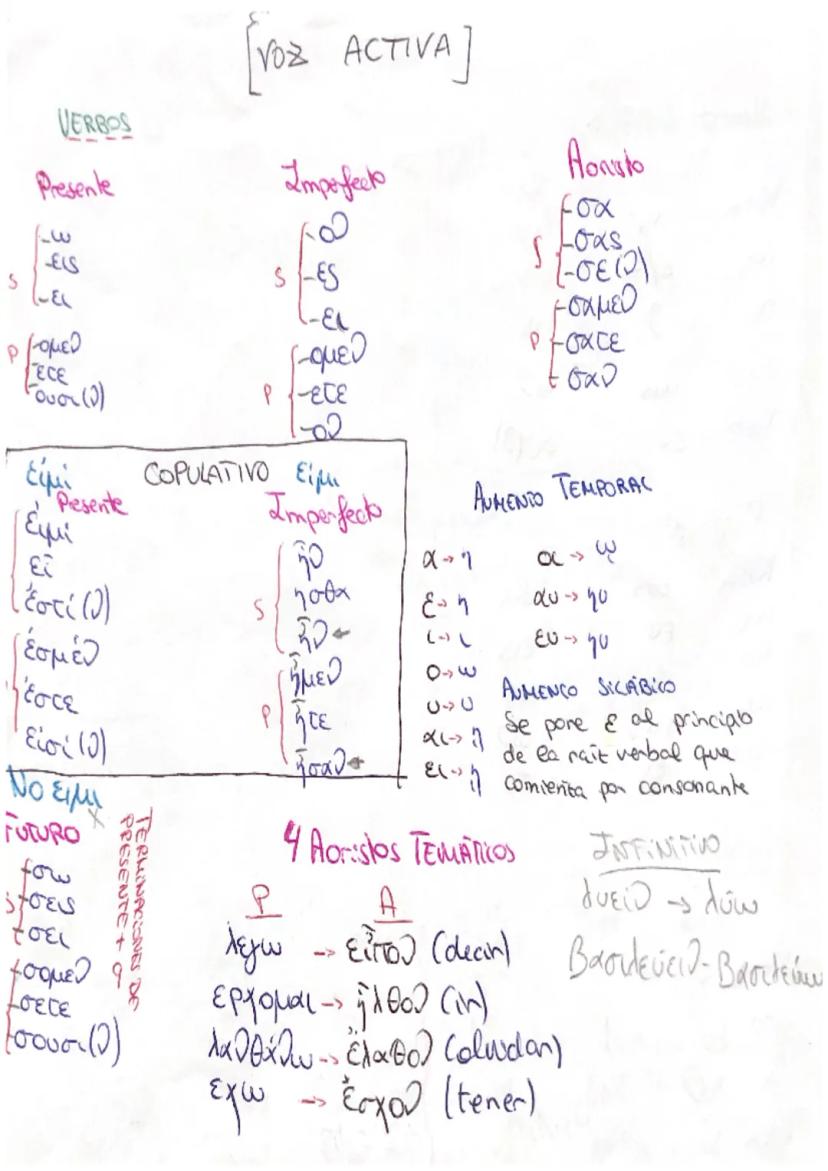 [VOZ ACTIVA]
VERBOS
Presente
S
-ω
-εις
-ει
P
-ομεν
-ετε
-ουσι(ν)
Imperfecto
S
-ον
-ες
-ει
P
-ομεν
-ετε
-ον
Aoristo
S
-σα
-σας
-σε(ν)
P
-σαμεν
-σατε
-σαν
εἰμί COPULATIVO εἰμι
Presente
ἐιμί
εἶ
ἐστί(ν)
ἐσμέν
ἐστε
εἰσί(ν)
Imperfecto
S
ἦν
ησθα
ἦν ←
P
ἦμεν
ἦτε
ἦσαν ←
AUMENTO TEMPORAL
α → η
ε → η
ι → ι
ο → ω
υ → υ
αι → ῃ
ει → ῃ
οι → ῳ
αυ → ηυ
ευ → ηυ
AUMENTO SILÁBICO
Se pone ε al principio
de la raíz verbal que
comienza por consonante
NO ειμι
FUTURO
S
-σω
-σεις
-σει
-σομεν
-σετε
-σουσι(ν)
TERMINACIONES DE
PRESENTE + σ
4 Aoristos TEMÁTICOS
P A
λεγω → εἶπον (decir)
ερχομαι → ἦλθον (ir)
λανθάνω → ἔλαθον (olvidar)
εχω → ἔσχον (tener)
INFINITIVO
λυειν → λύω
Βασιλεύειν - Βασιλεύω